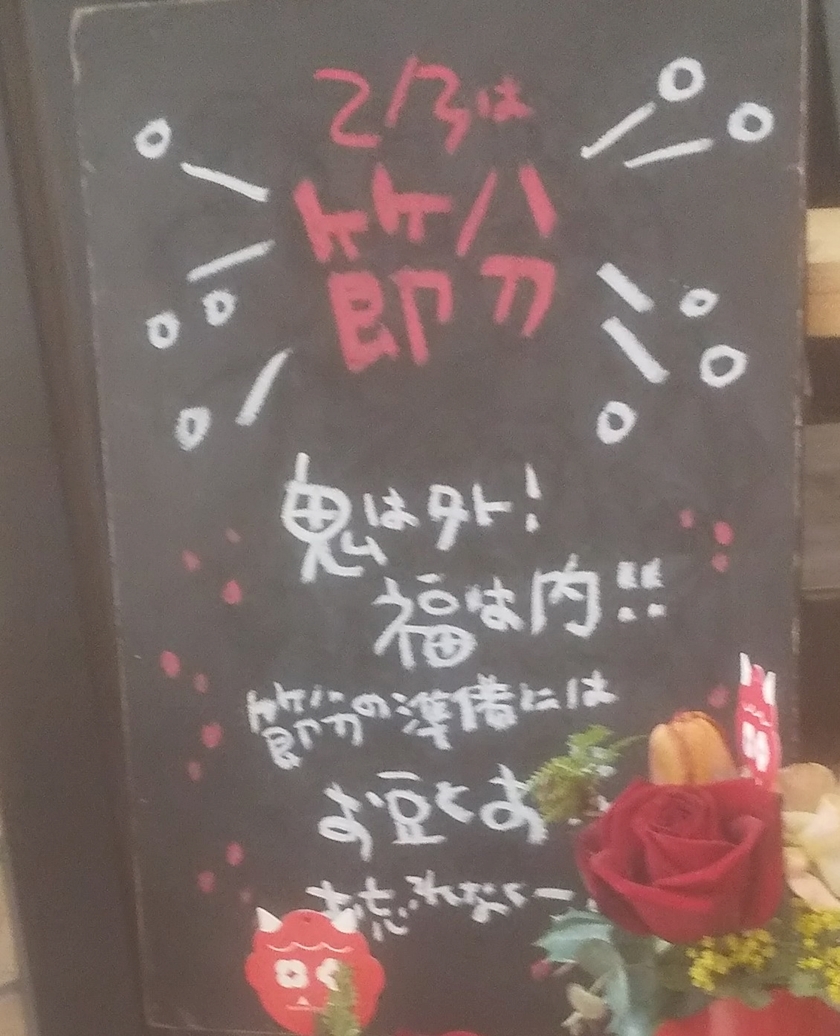 2/3は
節分
鬼は外!
福は内!!
節分の準備には
お豆とお
お忘れなくー